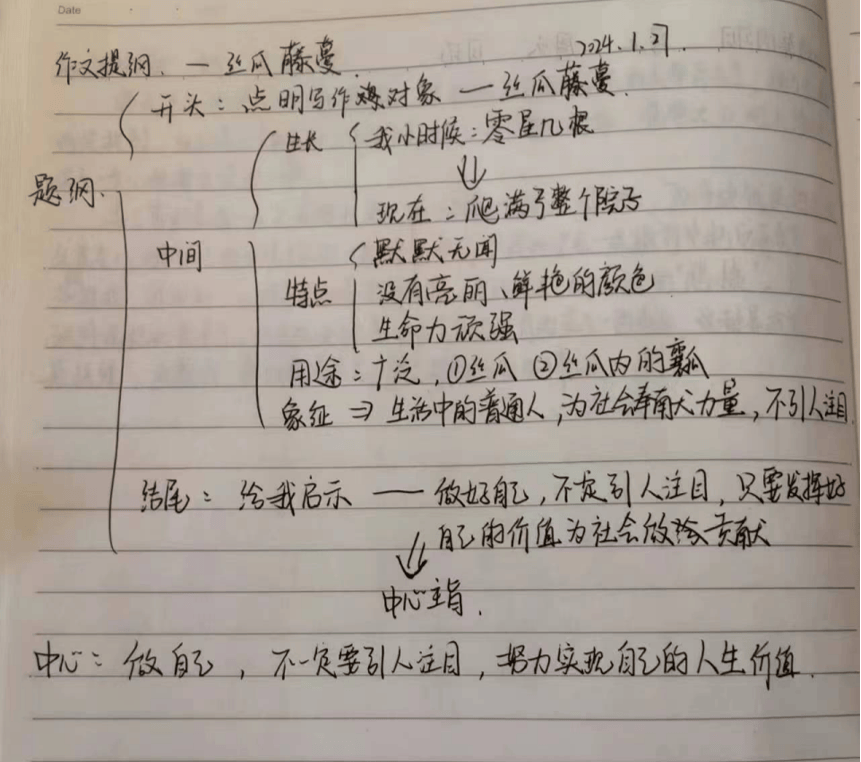 Date
作文提纲. — 丝瓜藤蔓. 2024.1.27.
开头：点明写作对象 — 丝瓜藤蔓.
生长 我小时候：零星几根
题纲.
现在：爬满了整个院子
中间 默默无闻
特点 没有亮丽、鲜艳的颜色
生命力顽强
用途：广泛，①丝瓜 ②丝瓜内的瓤
象征 ⇒ 生活中的普通人，为社会奉献力量，不引人注目.
结尾：给我启示 — 做好自己，不定引人注目，只要发挥好
自己的价值为社会做 贡献
中心主旨.
中心：做自己，不一定要引人注目，努力实现自己的人生价值.